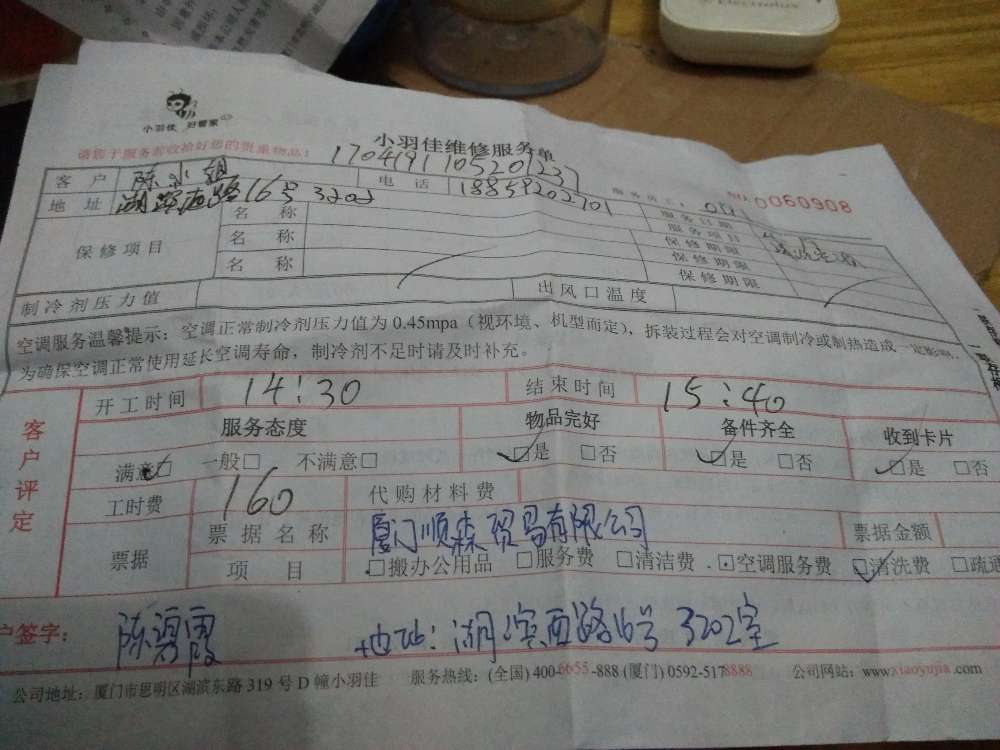 小羽佳 好管家
小羽佳维修服务单
请您于服务前收拾好您的贵重物品：
17041911052012 37
客户 陈小姐 电话 18859202701 服务员工： NO. 0060908
地址 湖滨西路16号3202 服务日期
保修项目 名称 服务项目
名称 保修期限
名称 保修期限
保修期限
制冷剂压力值 出风口温度
空调服务温馨提示：空调正常制冷剂压力值为0.45mpa（视环境、机型而定），拆装过程会对空调制冷或制热造成一定影响，
为确保空调正常使用延长空调寿命，制冷剂不足时请及时补充。
客户评定
开工时间 14:30 结束时间 15:40
服务态度 物品完好 备件齐全 收到卡片
满意□ 一般□ 不满意□ □是 □否 □是 □否 □是 □否
工时费 160 代购材料费
票据 票据名称 厦门顺森贸易有限公司 票据金额
项目 □搬办公用品 □服务费 □清洁费 □空调服务费 □清洗费 □疏通
户签字： 陈 霞 地址：湖滨西路16号 3202室
公司地址：厦门市思明区湖滨东路319号D幢小羽佳 服务热线：(全国) 400-6655-888 (厦门) 0592-5178888 公司网站：www.xiaoyujia.com